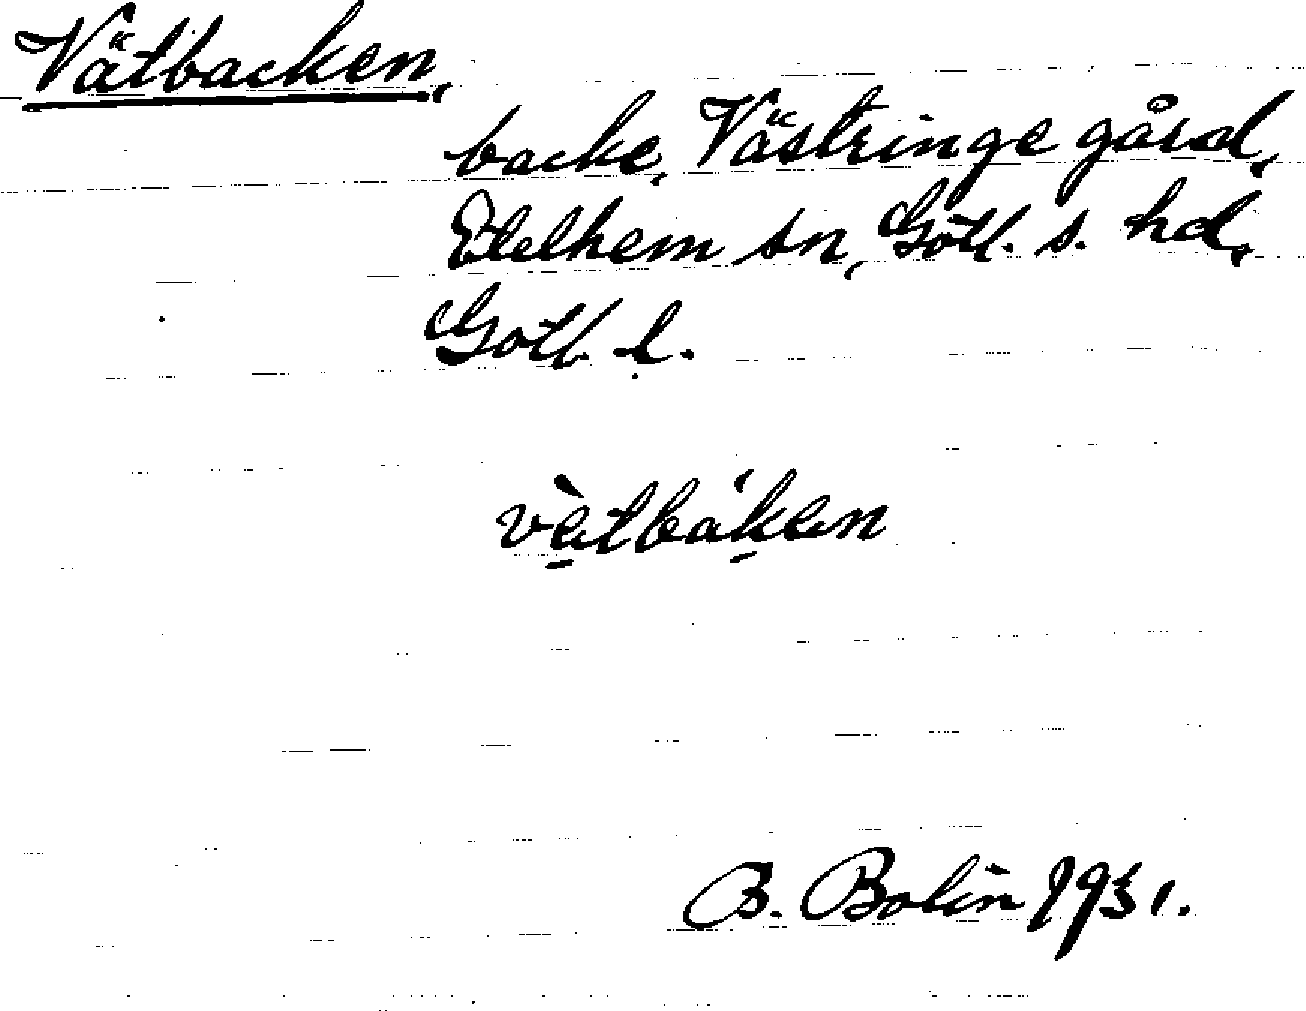 Vätbacken,
backe, Västringe gård,
Etelhem sn, Gotl. s. hd,
Gotl. l.
vètbáken
B. Bolin 1931.